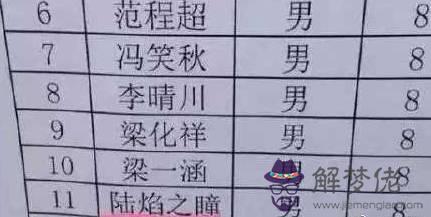 6 范程超 男 8
7 冯笑秋 男 8
8 李晴川 男 8
9 梁化祥 男 8
10 梁一涵 男 8
11 陆焰之瞳 男 8
解梦佬
www.jiemenglao.com